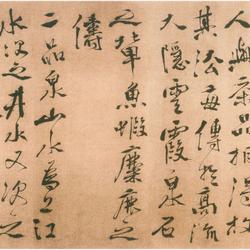 人與茶品相得故
其法每傳於高流
大隱雲霞泉石
之輩魚蝦麋鹿之
儔
二品泉山水為上江
水次之井水又次之